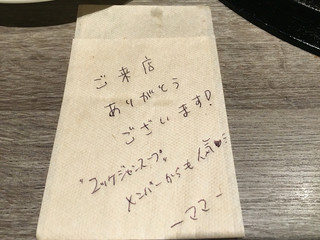 ご来店
ありがとう
ございます!
"ユッケジャンスープ"
メンバーからも人気♥
ーママー